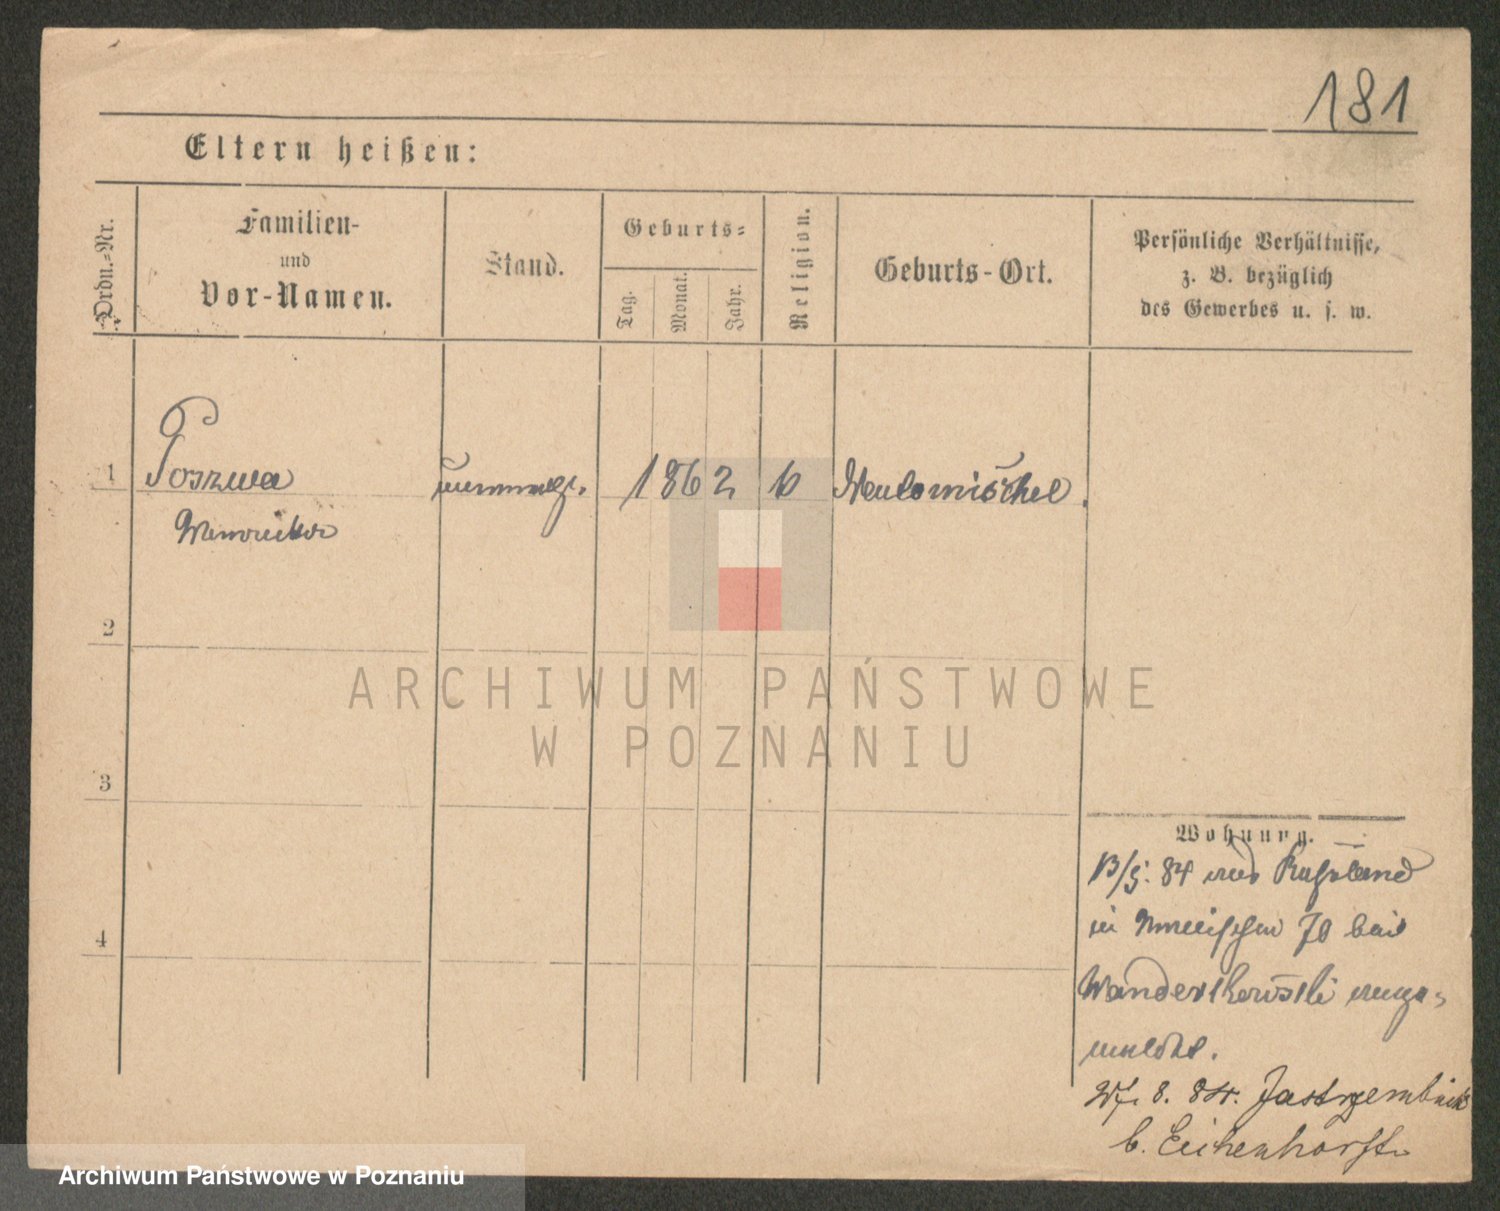 181
Eltern heißen:
Ordn.-Nr.
Familien-
und
Vor-Namen.
Stand.
Geburts-
Tag.
Monat.
Jahr.
Religion.
Geburts-Ort.
Persönliche Verhältnisse,
z. B. bezüglich
des Gewerbes u. s. w.
1
Poszwa
1862
Neutomischel.
2
3
4
Wohnung.
84 aus Russland
in 70 bei
ange-
meldet.
8. 84. Jastrzembski
b. Eichenhorst
ARCHIWUM PAŃSTWOWE
W POZNANIU
Archiwum Państwowe w Poznaniu